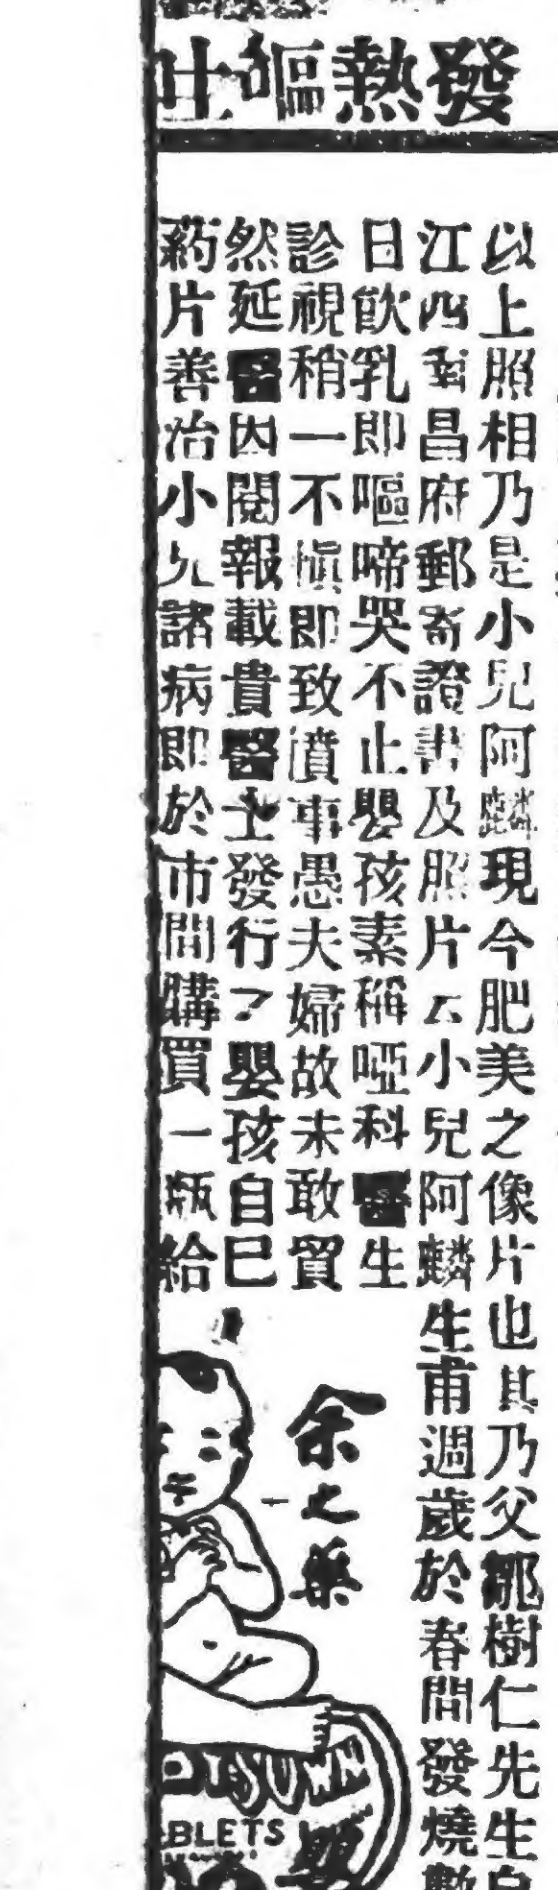 發熱嘔吐
以上照相乃是小兒阿麟現今肥美之像片也其乃父鄒樹仁先生自
江西南昌府郵寄證書及照片云小兒阿麟生甫週歲於春間發燒數
日飲乳即嘔啼哭不止嬰孩素稱啞科醫生
診視稍一不慎即致僨事愚夫婦故未敢貿
然延醫因閱報載貴醫士發行之嬰孩自已
葯片善治小兒諸病即於市間購買一瓶給
余之藥
OWN
BLETS